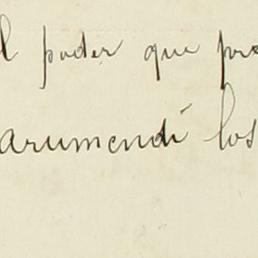 l poder que pre
arumendi los